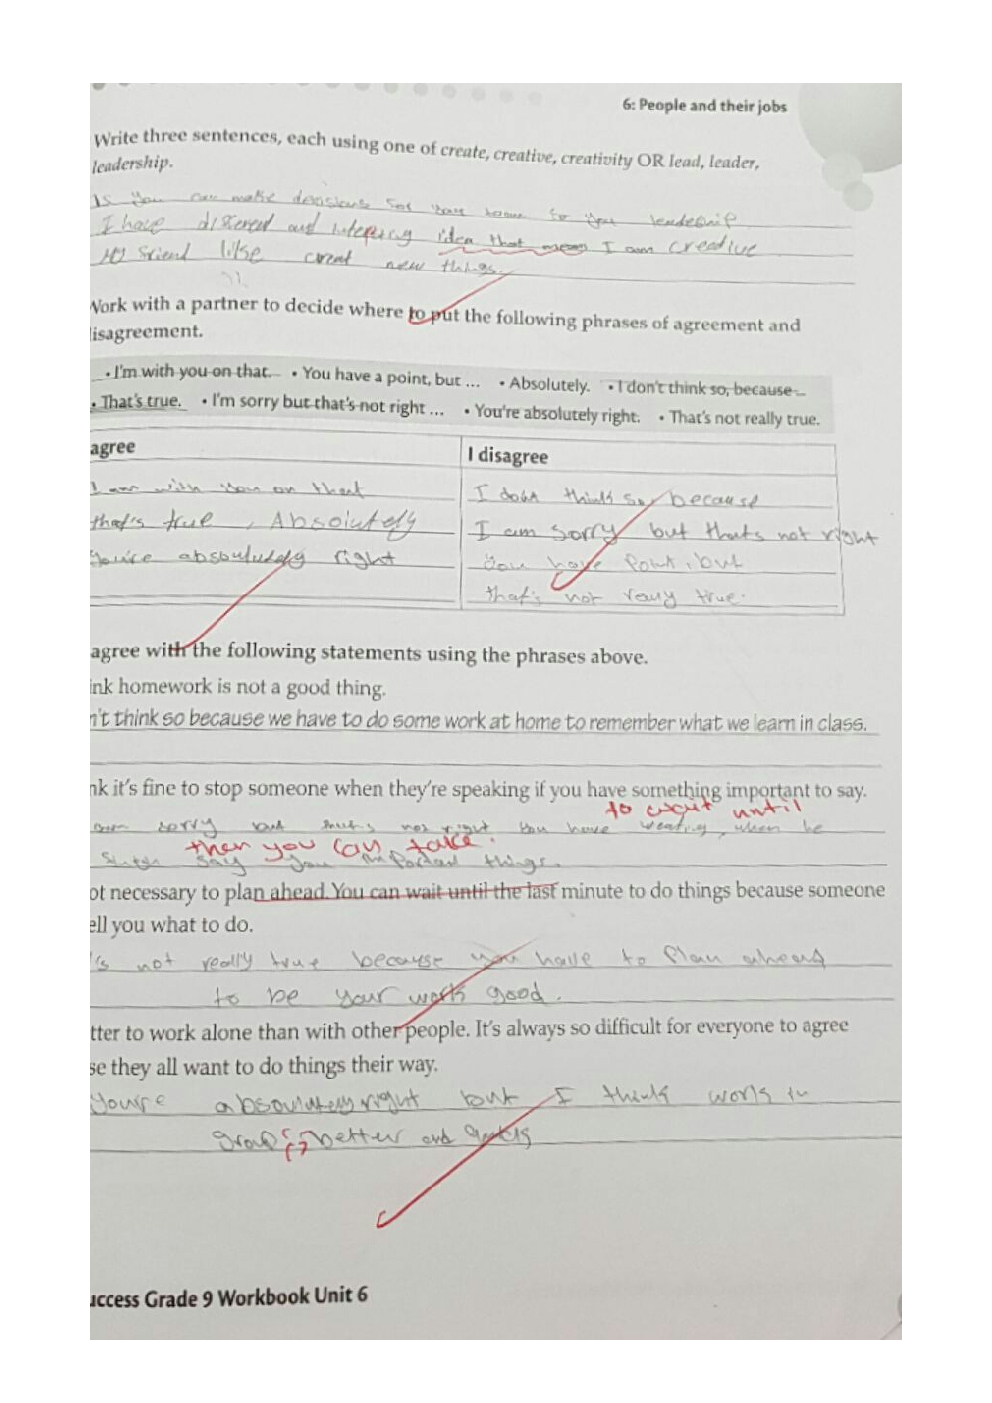 6: People and their jobs
Write three sentences, each using one of create, creative, creativity OR lead, leader,
leadership.
Is you can make decisions for your to you leadership
I have different and idea that mean I am creative
My friend like creat new things.
Work with a partner to decide where to put the following phrases of agreement and
isagreement.
• I'm with you on that. • You have a point, but ... • Absolutely. • I don't think so, because ...
• That's true. • I'm sorry but that's not right ... • You're absolutely right. • That's not really true.
agree
I disagree
I am with you on that
I don't think so, because
that's true, Absolutely
I am sorry but thats not right
you're absoulutely right
you have point, but
that's not realy true.
agree with the following statements using the phrases above.
ink homework is not a good thing.
n't think so because we have to do some work at home to remember what we learn in class.
nk it's fine to stop someone when they're speaking if you have something important to say.
to wait until
am sorry but that's not right you have weating, when he
then you can take.
say you important things.
ot necessary to plan ahead. You can wait until the last minute to do things because someone
ell you what to do.
's not really true because you have to plan ahead
to be your work good.
tter to work alone than with other people. It's always so difficult for everyone to agree
se they all want to do things their way.
Youre absoulutely right but I think work in
group is better and
uccess Grade 9 Workbook Unit 6